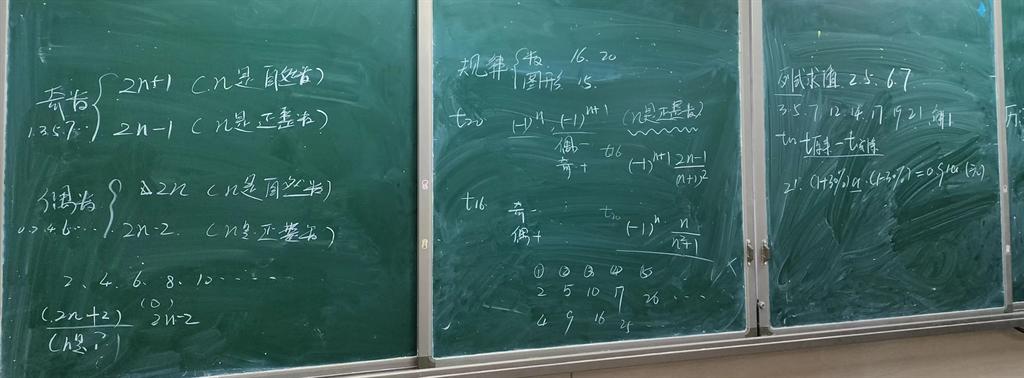 奇数
2n+1 (n是自然数)
1.3.5.7…
2n-1 (n是正整数)
偶数
2n (n是自然数)
0.2.4.6…
2n-2 (n是正整数)
2、4、6、8、10……
(0)
(2n+2) 2n-2
(n是?)
规律
数 16、20
图形 15
t20
(-1)^n、(-1)^{n+1} (n是正整数)
偶-
奇+
t16 (-1)^{n+1} \frac{2n-1}{(n+1)^2}
t16
奇-
偶+
t20 (-1)^n \frac{n}{n^2+1}
① ② ③ ④ ⑤
2 5 10 17 26 ……
4 9 16 25
求值 2.5.6.7
3.5.7 12.14.17 19 21
21. (1+30%)a·(1-30%)=0.91a (元)